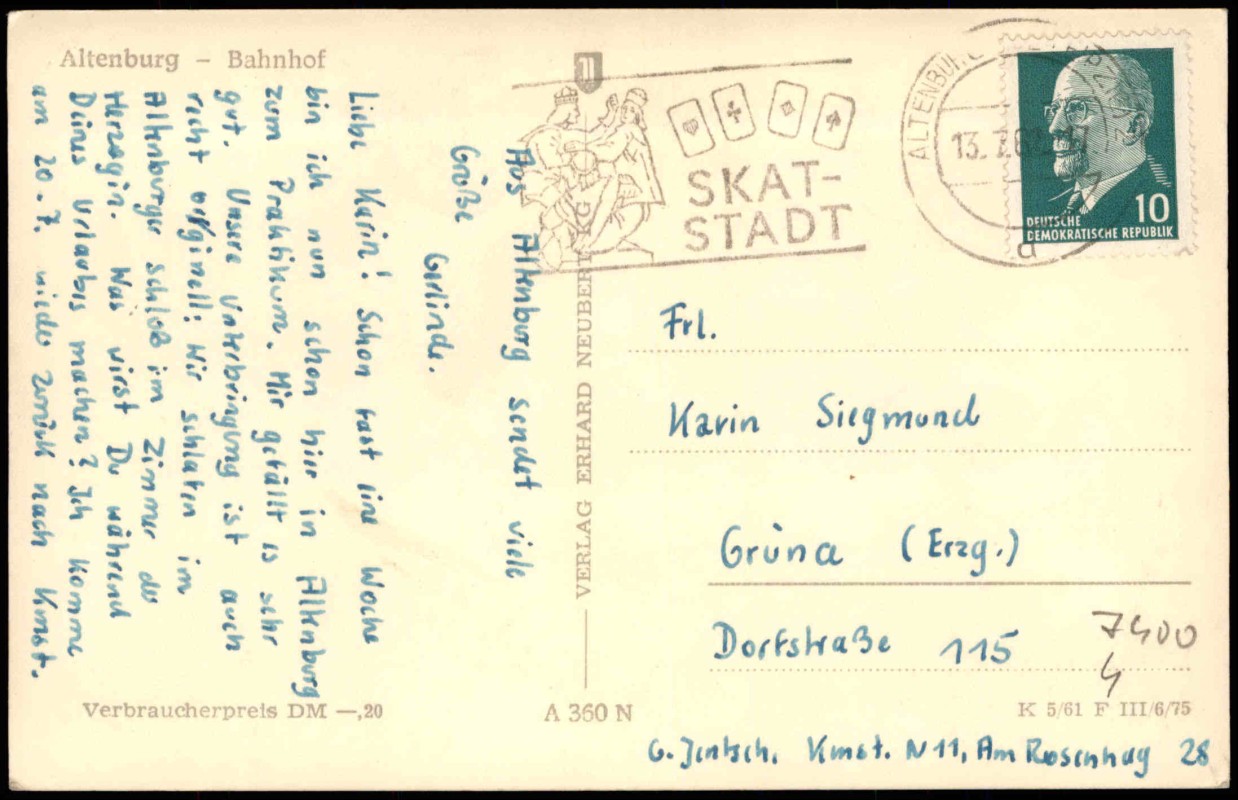 Altenburg – Bahnhof
Aus Altenburg sendet viele
Grüße
Gerlinde.
Liebe Karin! Schon fast eine Woche
bin ich nun schon hier in Altenburg
zum Praktikum. Mir gefällt es sehr
gut. Unsere Unterbringung ist auch
recht originell: Wir schlafen im
Altenburger Schloß im Zimmer der
Herzogin. Was wirst Du während
Deines Urlaubs machen? Ich komme
am 20.7. wieder zurück nach Kmst.
Verbraucherpreis DM —,20
VERLAG ERHARD NEUBERT KG
A 360 N
SKAT-
STADT
ALTENBURG
13.7.6
d
10
DEUTSCHE
DEMOKRATISCHE REPUBLIK
Frl.
Karin Siegmund
Grüna (Erzg.)
Dorfstraße 115
7400
4
K 5/61 F III/6/75
G. Jentsch, Kmst. N 11, Am Rosenhag 28